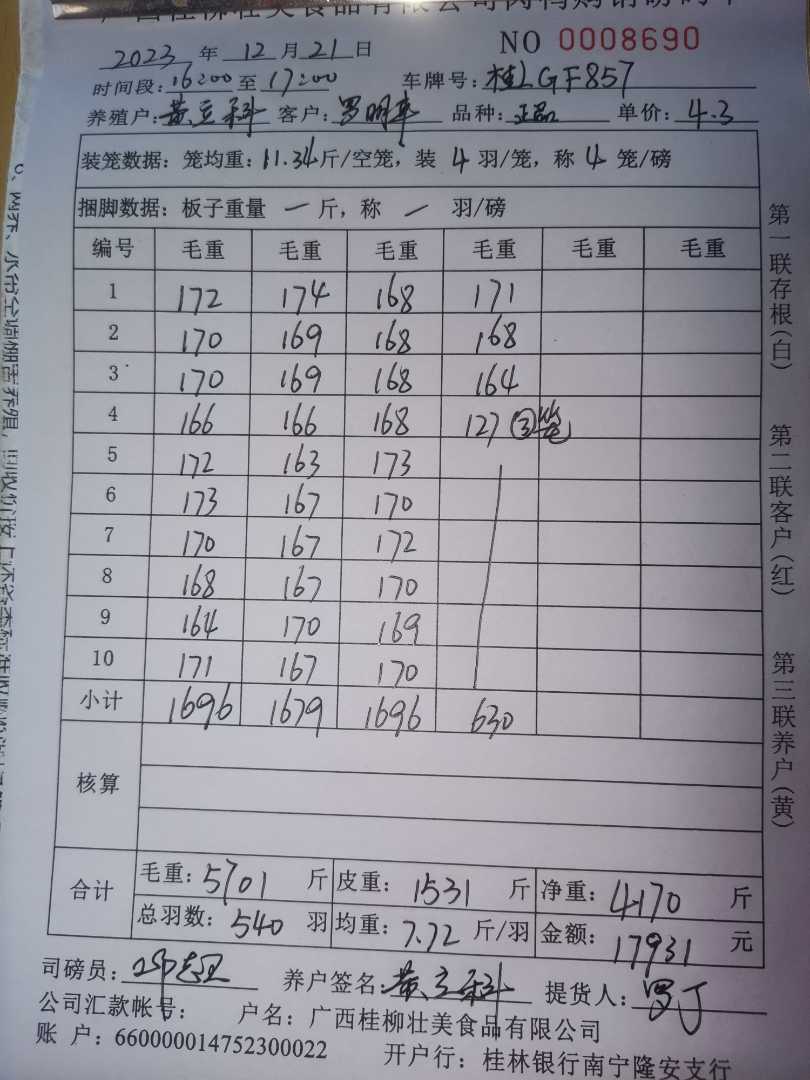 2023 年 12 月 21 日 NO 0008690
时间段: 16:00 至 17:00 车牌号: 桂LGF857
养殖户: 黄立科 客户: 罗明 品种: 正品 单价: 4.3
装笼数据: 笼均重: 11.34 斤/空笼, 装 4 羽/笼, 称 4 笼/磅
捆脚数据: 板子重量 一 斤, 称 一 羽/磅
编号 毛重 毛重 毛重 毛重 毛重 毛重
1 172 174 168 171
2 170 169 168 168
3 170 169 168 164
4 166 166 168 127 ③笼
5 172 163 173
6 173 167 170
7 170 167 172
8 168 167 170
9 164 170 169
10 171 167 170
小计 1696 1679 1696 630
核算
合计 毛重: 5701 斤 皮重: 1531 斤 净重: 4170 斤
总羽数: 540 羽 均重: 7.72 斤/羽 金额: 17931 元
司磅员: 养户签名: 黄立科 提货人: 罗丁
公司汇款帐号: 户名: 广西桂柳壮美食品有限公司
账 户: 660000014752300022 开户行: 桂林银行南宁隆安支行
第一联存根(白)
第二联客户(红)
第三联养户(黄)